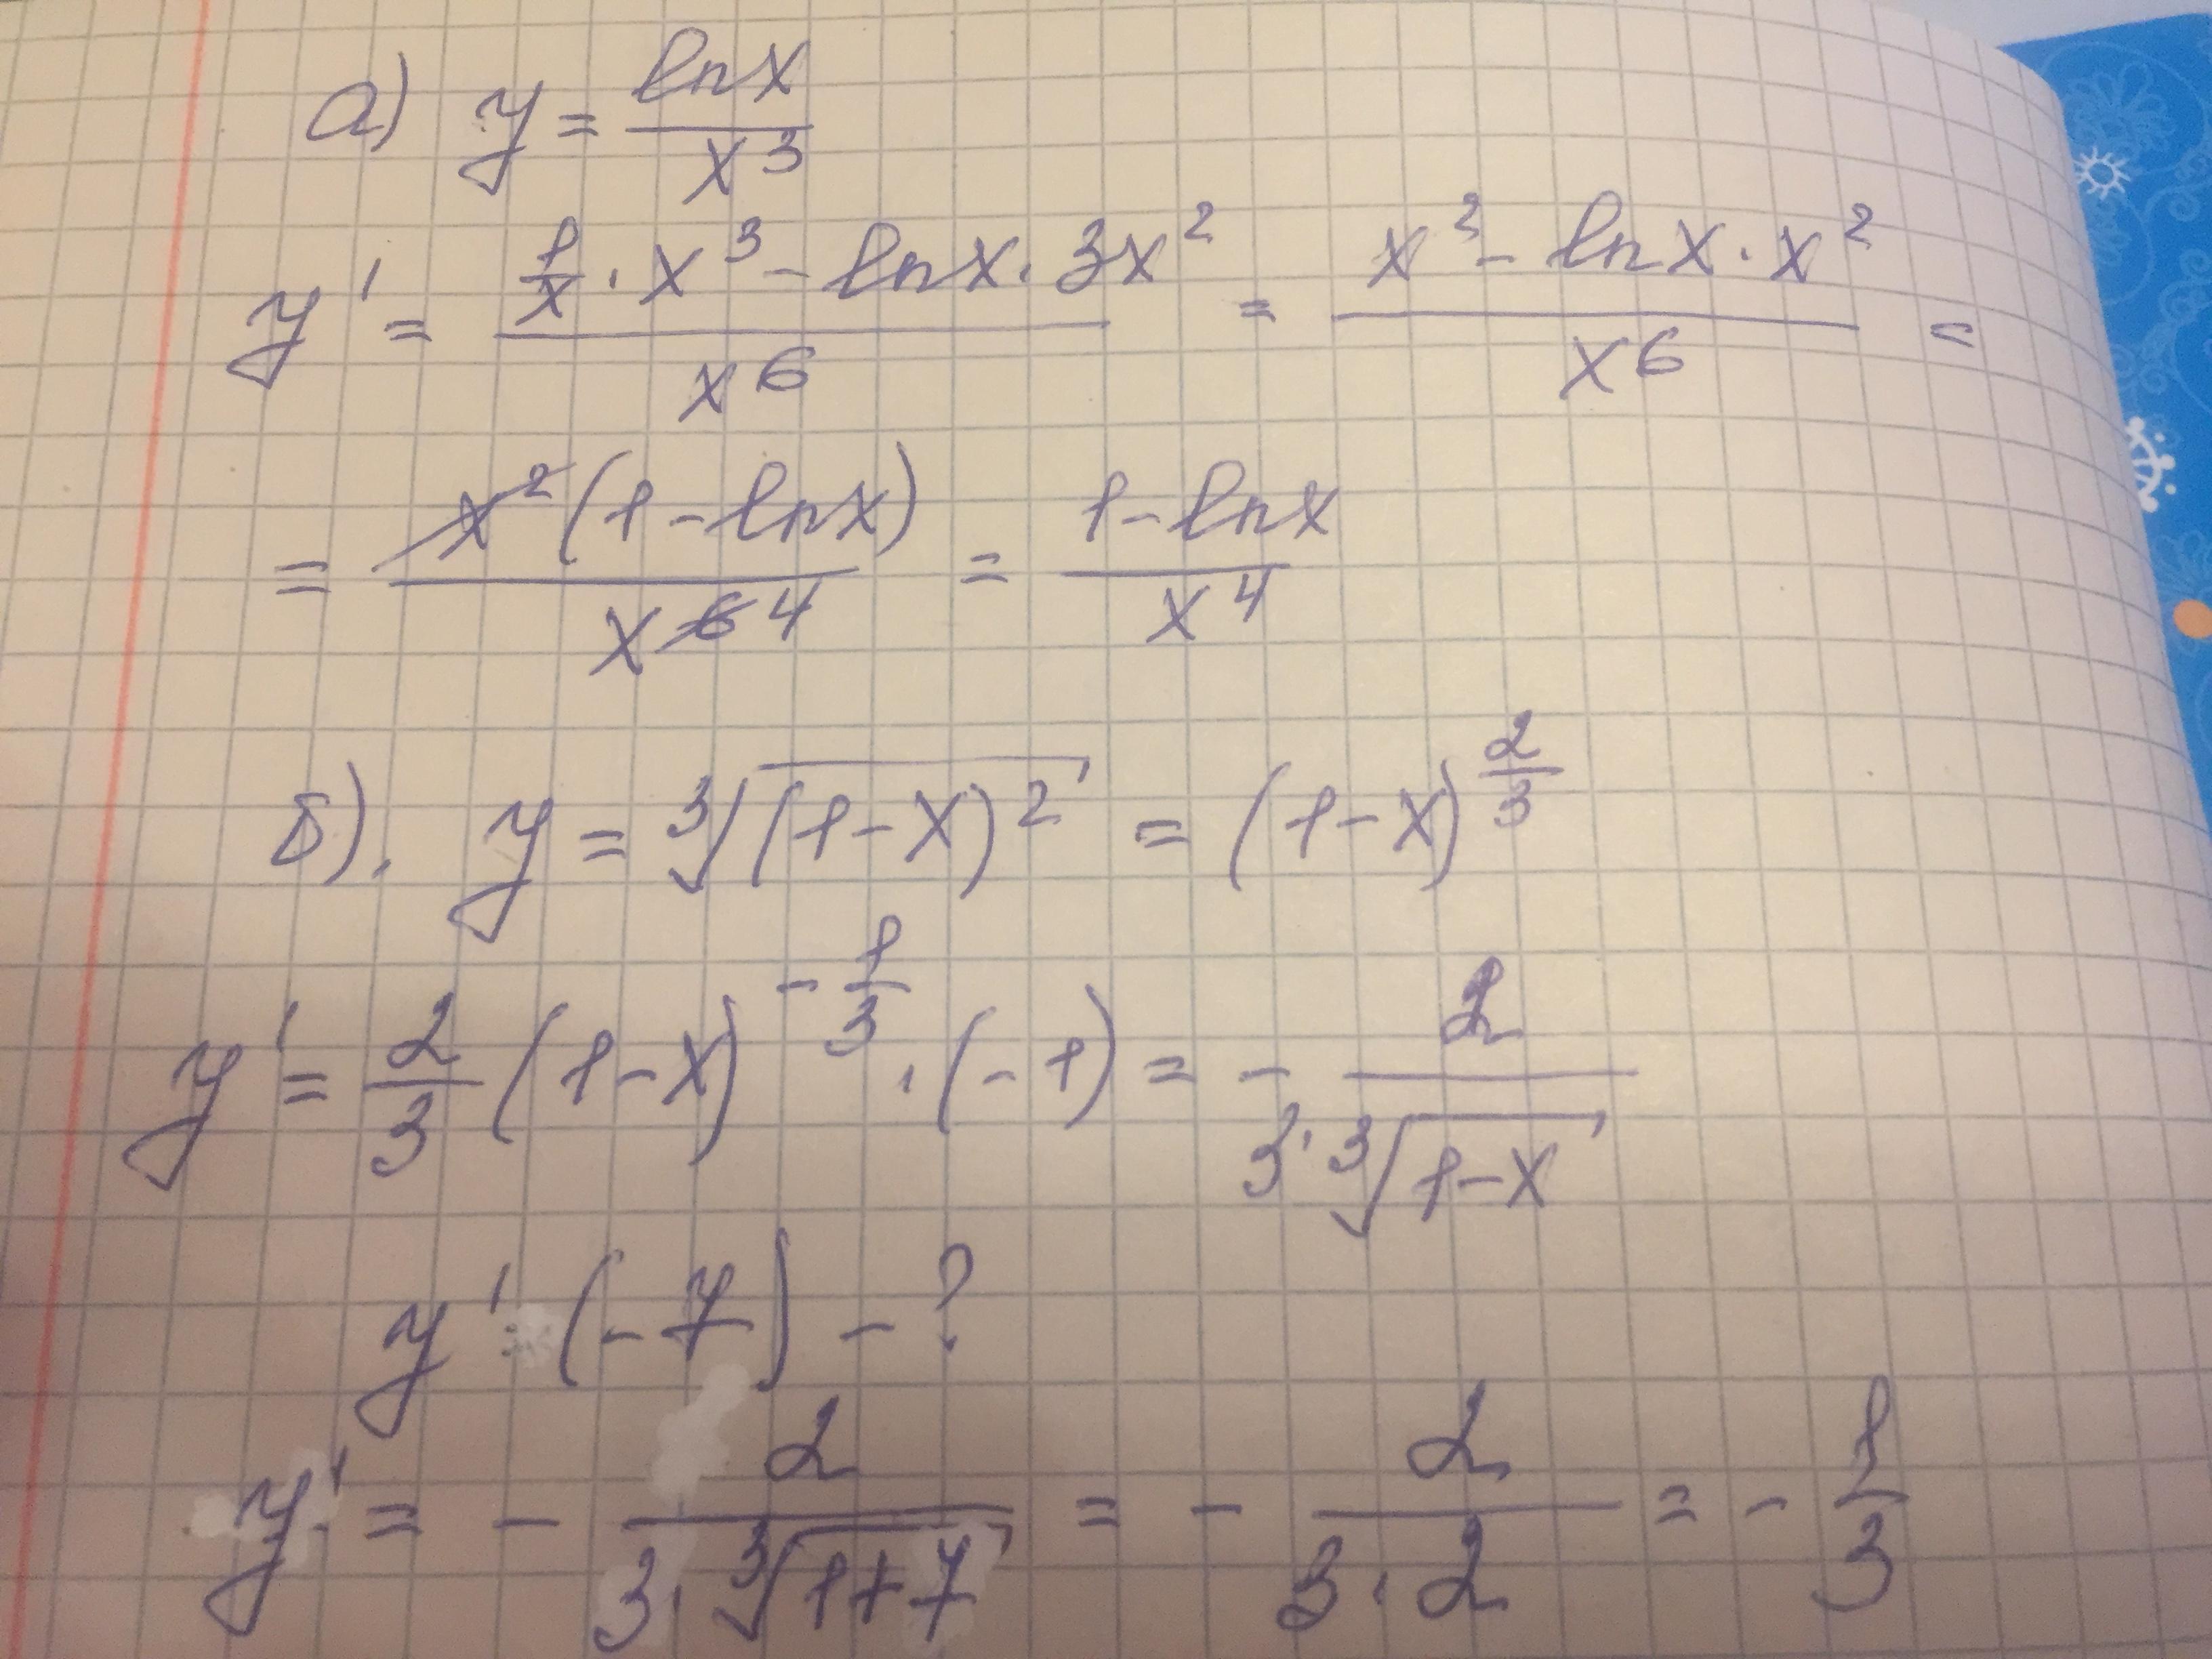 а) y = lnx / x³
y' = (1/x · x³ - lnx · 3x²) / x⁶ = (x² - lnx · x²) / x⁶ =
= x²(1 - lnx) / x⁶ ⁴ = (1 - lnx) / x⁴
б). y = ³√((1-x)²) = (1-x)^(2/3)
y' = 2/3 (1-x)^(-1/3) · (-1) = - 2 / (3 · ³√(1-x))
y' (-7) - ?
y' = - 2 / (3 · ³√(1+7)) = - 2 / (3 · 2) = - 1/3